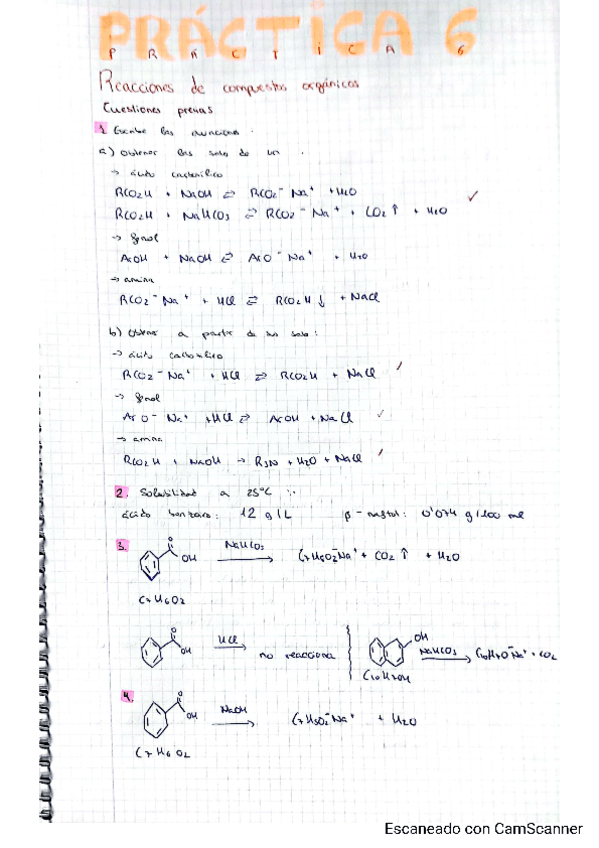 PRÁCTICA 6
P R Á C T I C A 6
Reacciones de compuestos orgánicos
Cuestiones previas
1. Escribe las
a) Obtener las sales de un
→ ácido carboxílico
RCO2H + NaOH ⇄ RCO2⁻ Na⁺ + H2O
RCO2H + NaHCO3 ⇄ RCO2⁻ Na⁺ + CO2 ↑ + H2O
→ fenol
ArOH + NaOH ⇄ ArO⁻ Na⁺ + H2O
→ amina
RCO2⁻ Na⁺ + HCl ⇄ RCO2H ↓ + NaCl
b) Obtener a partir de sus sales:
→ ácido carboxílico
RCO2⁻ Na⁺ + HCl ⇄ RCO2H + NaCl
→ fenol
ArO⁻ Na⁺ + HCl ⇄ ArOH + NaCl
→ amina
RCO2H + NaOH → R3N + H2O + NaCl
2. Solubilidad a 25°C
ácido benzoico: 12 g/L β-naftol: 0'074 g/100 ml
3. O OH NaHCO3 C7H5O2⁻Na⁺ + CO2 ↑ + H2O
C7H6O2
O OH HCl no reacciona OH NaHCO3 C10H7O⁻Na⁺ + CO2
C10H7OH
4. O OH NaOH C7H5O2⁻Na⁺ + H2O
C7H6O2
Escaneado con CamScanner